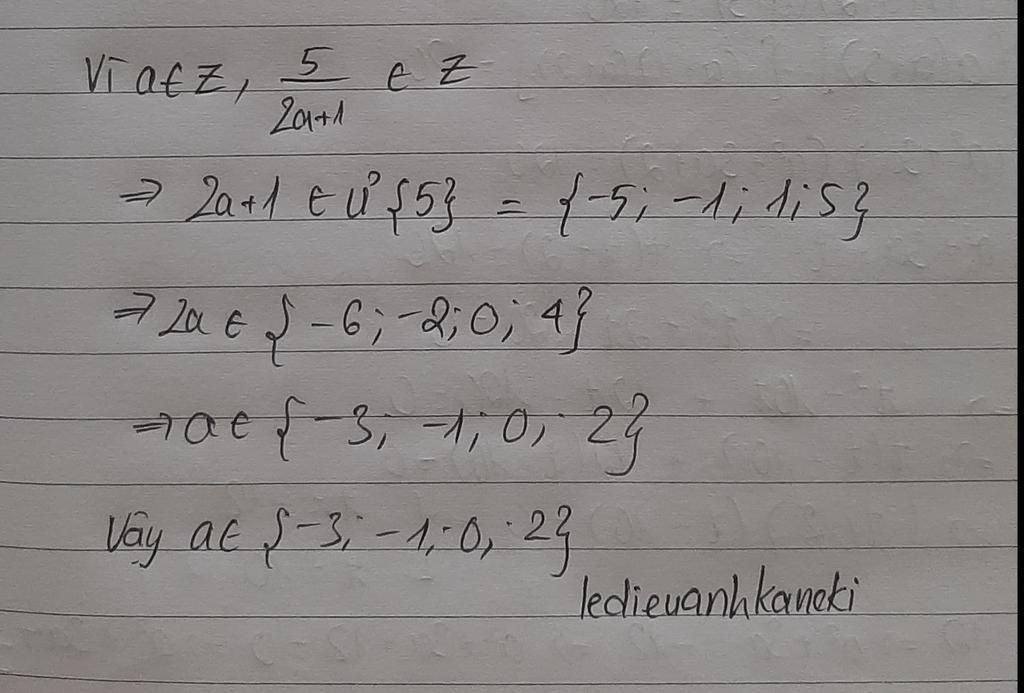 Vì a ∈ Z, 5/(2a+1) ∈ Z
⇒ 2a+1 ∈ Ư {5} = {-5; -1; 1; 5}
⇒ 2a ∈ {-6; -2; 0; 4}
⇒ a ∈ {-3; -1; 0; 2}
Vậy a ∈ {-3; -1; 0; 2}
ledieuanhkaneki